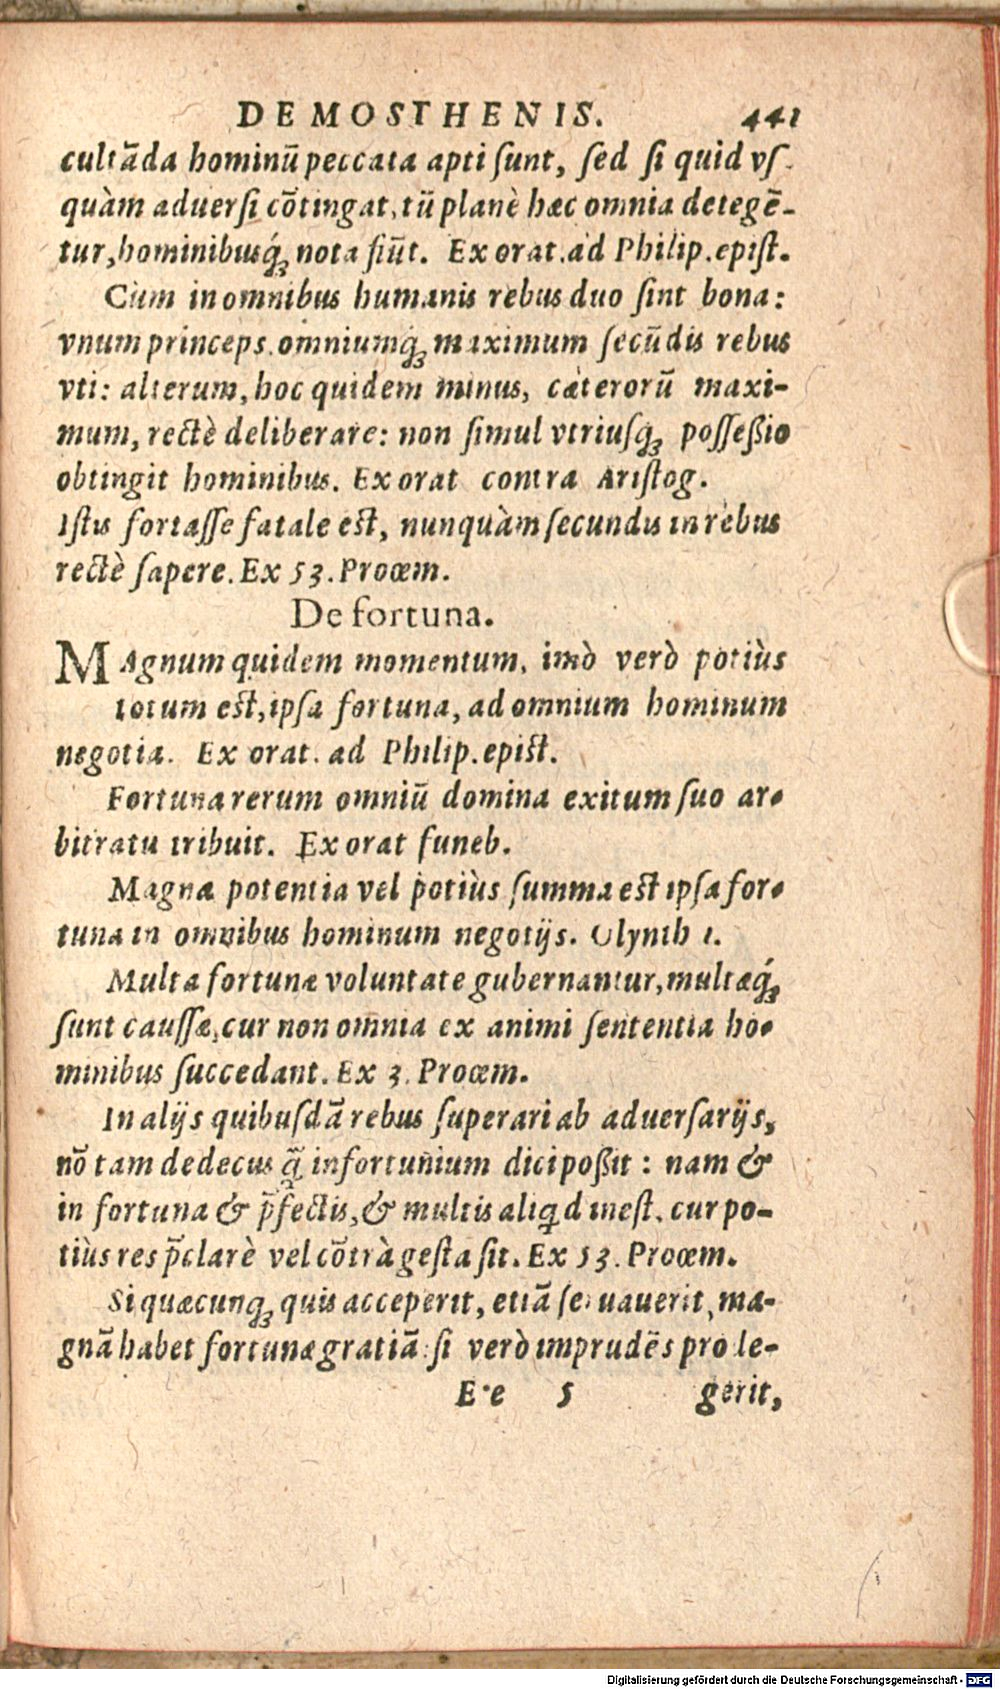 DEMOSTHENIS. 441
cultāda hominū peccata apti sunt, sed si quid vs-
quàm aduersi cōtingat, tū planè hæc omnia detegē-
tur, hominibusq́ꝫ nota siūt. Ex orat. ad Philip. epist.
Cùm in omnibus humanis rebus duo sint bona:
vnum princeps, omniumq́ꝫ maximum secūdis rebus
vti: alterum, hoc quidem minus, cæterorū maxi-
mum, rectè deliberare: non simul vtriusq́ꝫ posseßio
obtingit hominibus. Ex orat contra Aristog.
Istis fortasse fatale est, nunquàm secundis in rebus
rectè sapere. Ex 53. Proœm.
De fortuna.
MAgnum quidem momentum, imò verò potiùs
totum est, ipsa fortuna, ad omnium hominum
negotia. Ex orat. ad Philip. epist.
Fortuna rerum omniū domina exitum suo ar-
bitratu tribuit. Ex orat funeb.
Magna potentia vel potiùs summa est ipsa for-
tuna in omnibus hominum negotijs. Olynth 1.
Multa fortunæ voluntate gubernantur, multæq́ꝫ
sunt caussæ, cur non omnia ex animi sententia ho-
minibus succedant. Ex 3. Proœm.
In alijs quibusdā rebus superari ab aduersarijs,
nō tam dedecus q̄ infortunium dici poßit: nam &
in fortuna & p̄fectis, & multis aliqd inest, cur po-
tiùs res p̄clarè vel cōtrà gesta sit. Ex 53. Proœm.
Si quæcunqꝫ quis acceperit, etiā seruauerit, ma-
gnā habet fortunæ gratiā: si verò imprudēs pro le-
Ee 5 gerit,
Digitalisierung gefördert durch die Deutsche Forschungsgemeinschaft - DFG